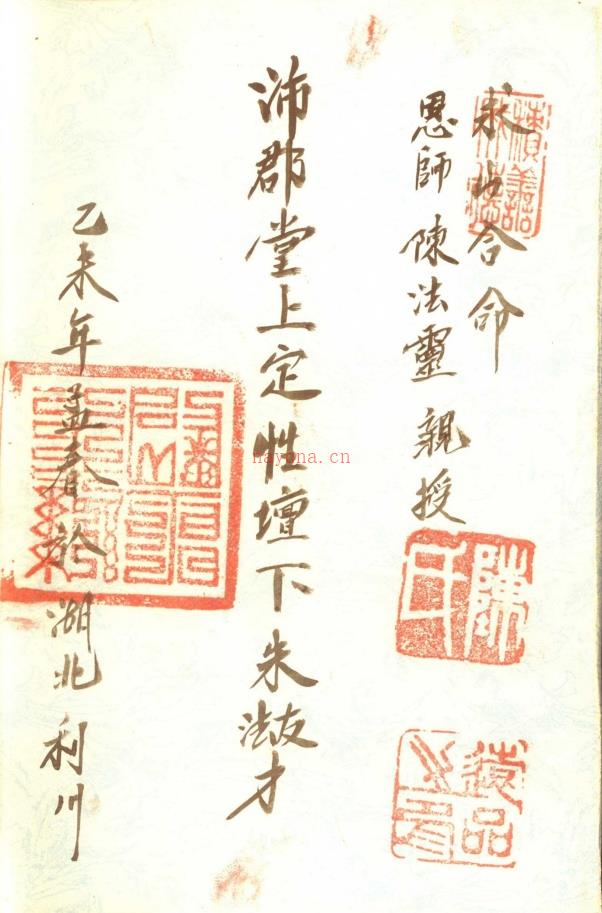 合命
恩師陳法靈親授
陳氏
沛郡堂上定性壇下朱才
乙未年孟春於湖北利川
nayona.cn